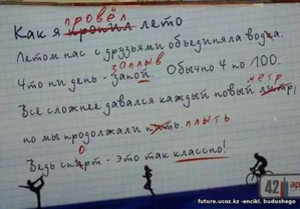 провёл
Как я пропил лето
Летом нас с друзьями объединяла водка.
заплыв
Что ни день - запой. Обычно 4 по 100.
метр
Всё сложнее давался каждый новый литр,
но мы продолжали пить. плыть
о
Ведь спирт - это так классно!
42
ар
future.ucoz.kz -encikl. budushego